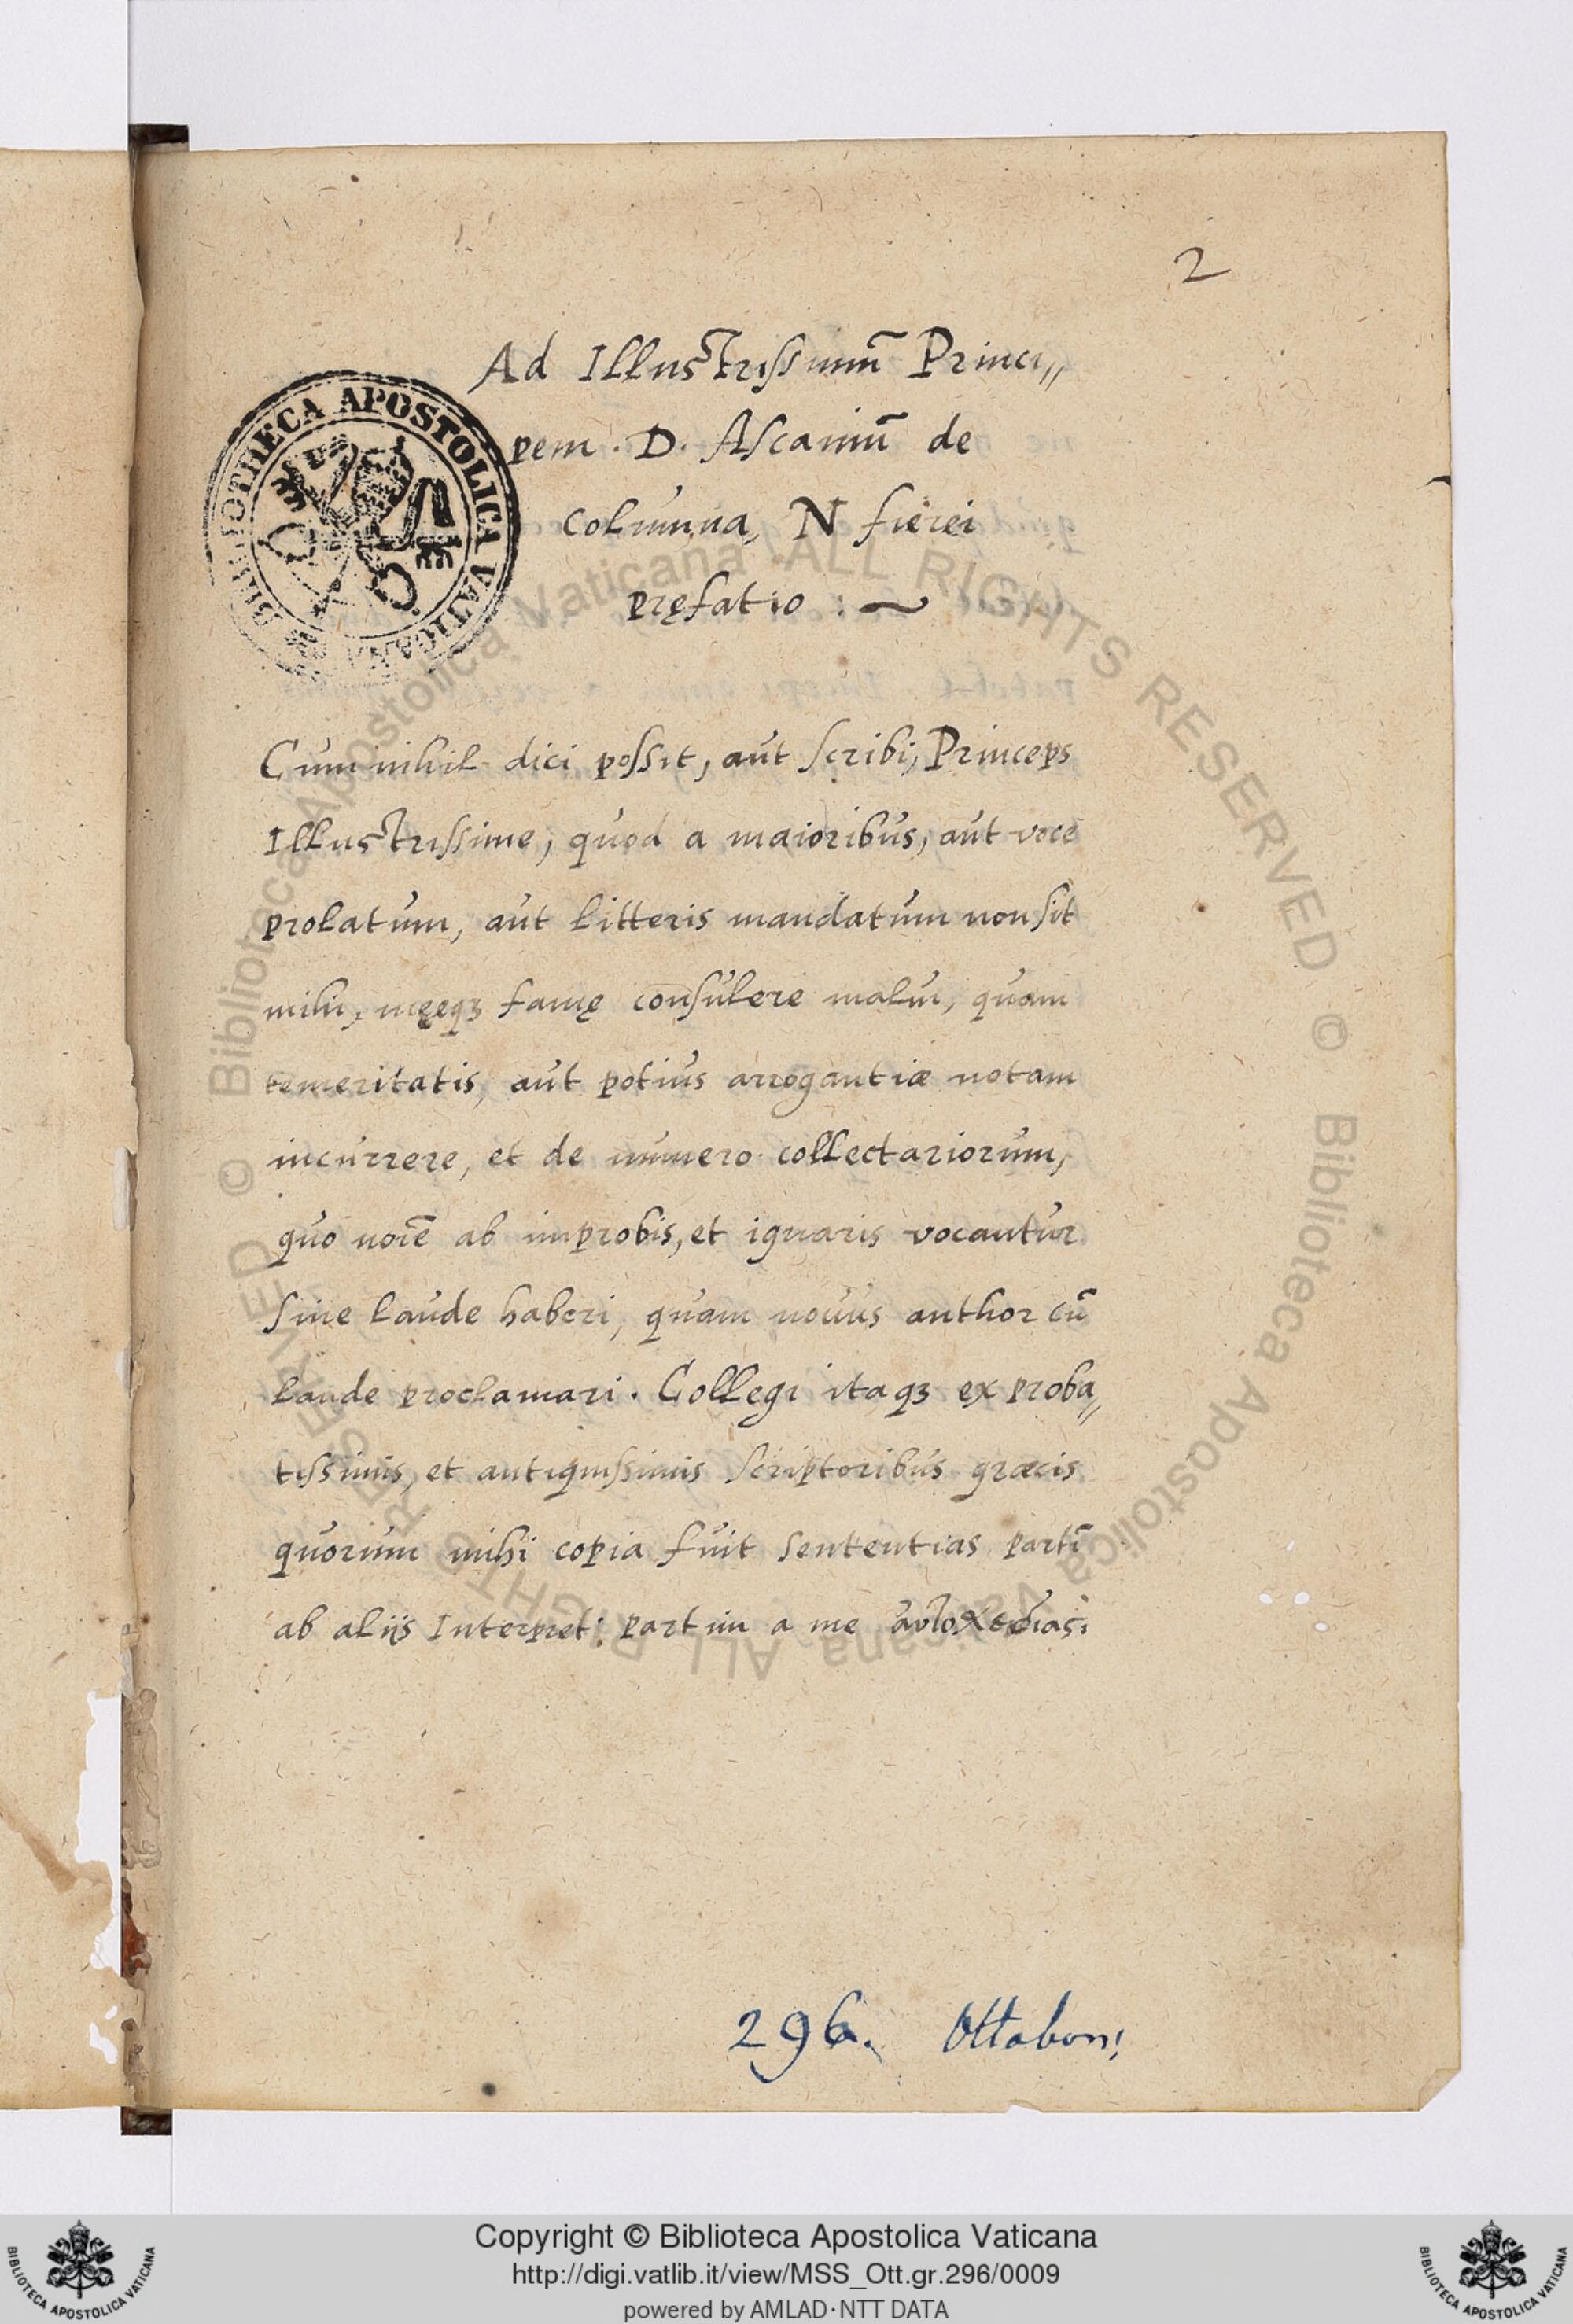 2
Ad Illustrissimū Princi〃
pem . D. Ascaniū de
columna, N fierei
pręfatio : ~
Cum nihil dici possit, aut scribi, Princeps
Illustrissime, quod a maioribus, aut voce
prolatum, aut litteris mandatum non sit
mihi, męęqꝫ famę consulere malui, quam
temeritatis, aut potius arrogantiæ notam
incurrere, et de numero collectariorum,
quo noīe ab improbis, et ignaris vocantur
sine laude haberi, quam nouus author cū
laude proclamari . Collegi itaqꝫ ex proba〃
tissimis, et antiquissimis scriptoribus græcis
quorum mihi copia fuit sententias partī
ab alijs Interpret: partim a me
296. Ottobon:
BIBLIOTHECA APOSTOLICA VATICANA
© Biblioteca Apostolica Vaticana ALL RIGHTS RESERVED
© Biblioteca Apostolica Vaticana ALL RIGHTS RESERVED
Copyright © Biblioteca Apostolica Vaticana
http://digi.vatlib.it/view/MSS_Ott.gr.296/0009
powered by AMLAD·NTT DATA
BIBLIOTECA APOSTOLICA VATICANA
BIBLIOTECA APOSTOLICA VATICANA